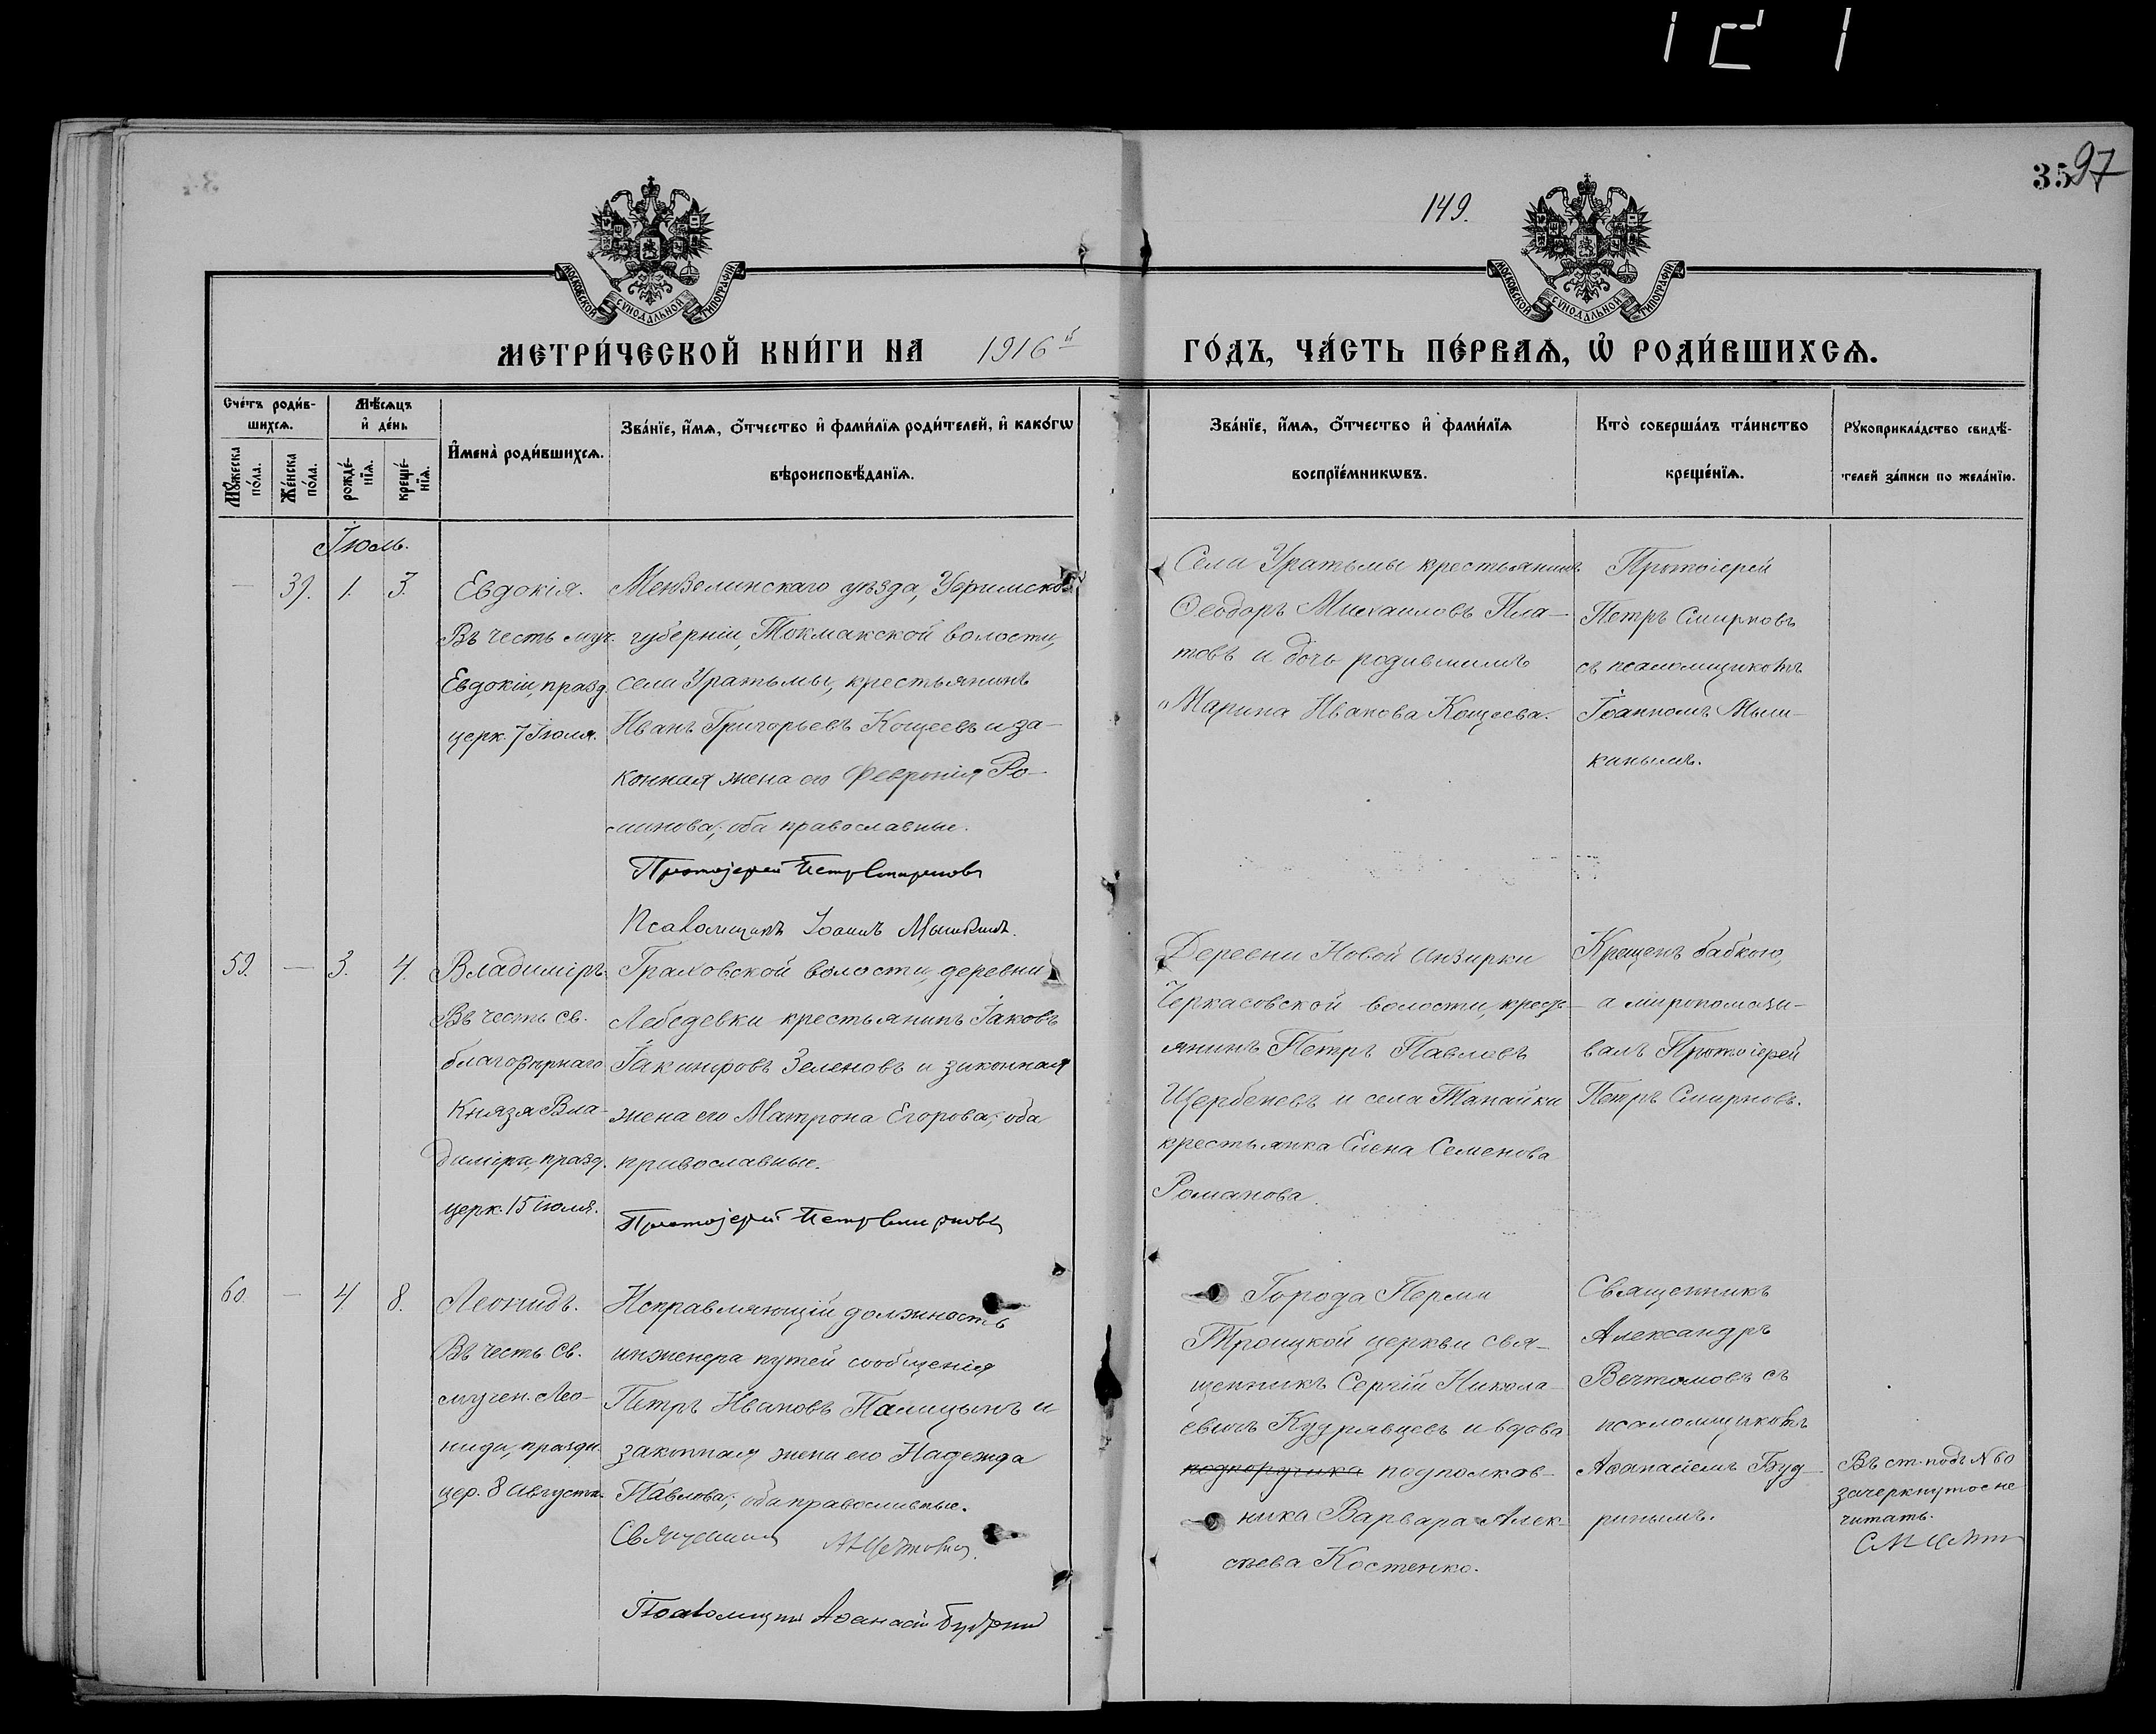 121
3597
149.
МОСКОВСКОЙ СѴНОДАЛЬНОЙ ТИПОГРАФІИ.
МОСКОВСКОЙ СѴНОДАЛЬНОЙ ТИПОГРАФІИ.
МЕТРИ́ЧЕСКОЙ КНИ́ГИ НА 1916й ГО́ДЪ, ЧА́СТЬ ПЕ́РВАѦ, Ѡ҆ РОДИ́ВШИХСѦ.
Сче́тъ роди́в-
шихсѧ.
Мꙋ́жеска по́ла.
Же́нска по́ла.
Мѣ́сѧцъ
и҆ де́нь
рожде́-
нїѧ.
креще́-
нїѧ.
И҆мена̀ роди́вшихсѧ.
Зва́нїе, и҆́мѧ, ѻ҆́тчество и҆ фами́лїѧ роди́телей, и҆ како́гѡ
вѣроисповѣ́данїѧ.
Зва́нїе, и҆́мѧ, ѻ҆́тчество и҆ фами́лїѧ
воспрїе́мникѡвъ.
Кто̀ соверша́лъ та́инство
креще́нїѧ.
Рꙋкоприкла́дство свидѣ́-
телей за́писи по жела́нїю.
Іюль.
— 39. 1. 3.
Евдокія.
Въ честь муч.
Евдокіи, празд.
церк. 7 Іюля.
Мензелинскаго уѣзда, Уфимской
губерніи, Токмакской волости,
села Уратьмы, крестьянинъ
Иванъ Григорьевъ Кощеевъ и за-
конная жена его Февронія Ро-
манова; оба православные.
Протоіерей Петръ Смирновъ
Псаломщикъ Іоаннъ Мышкинъ.
Села Уратьмы крестьянинъ
Ѳеодоръ Михаиловъ Пла-
товъ и дочь родившимъ
Марина Иванова Кощеева.
Протоіерей
Петръ Смирновъ
съ псаломщикомъ
Іоанномъ Мыш-
кинымъ.
59. — 3. 4.
Владиміръ.
Въ честь св.
благовѣрнаго
Князя Вла-
диміра, празд.
церк. 15 іюля.
Граховской волости, деревни
Лебедевки крестьянинъ Іаковъ
Іакинфовъ Зеленовъ и законная
жена его Матрона Егорова; оба
православные.
Протоіерей Петръ Смирновъ
Деревни Новой Анзирки
Черкасовской волости, кресть-
янинъ Петръ Павловъ
Щербеневъ и села Танайки
крестьянка Елена Семенова
Романова.
Крещенъ бабкою,
а мѵропомазы-
валъ Протоіерей
Петръ Смирновъ.
60. — 4 8.
Леонидъ.
Въ честь св.
мучен. Лео-
нида, праздн.
цер. 8 августа.
Исправляющій должность
инженера путей сообщенія
Петръ Ивановъ Палицынъ и
законная жена его Надежда
Павлова; оба православные.
Священникъ
Псаломщикъ Аѳанасій Будринъ
Города Перми
Троицкой церкви свя-
щенникъ Сергій Никола-
евичъ Кудрявцевъ и вдова
подпоручика подполков-
ника Варвара Алек-
сѣева Костенко.
Священникъ
Александръ
Вечтомовъ съ
псаломщикомъ
Аѳанасіемъ Буд-
ринымъ.
Въ ст. подъ N 60
зачеркнутое не
читать.